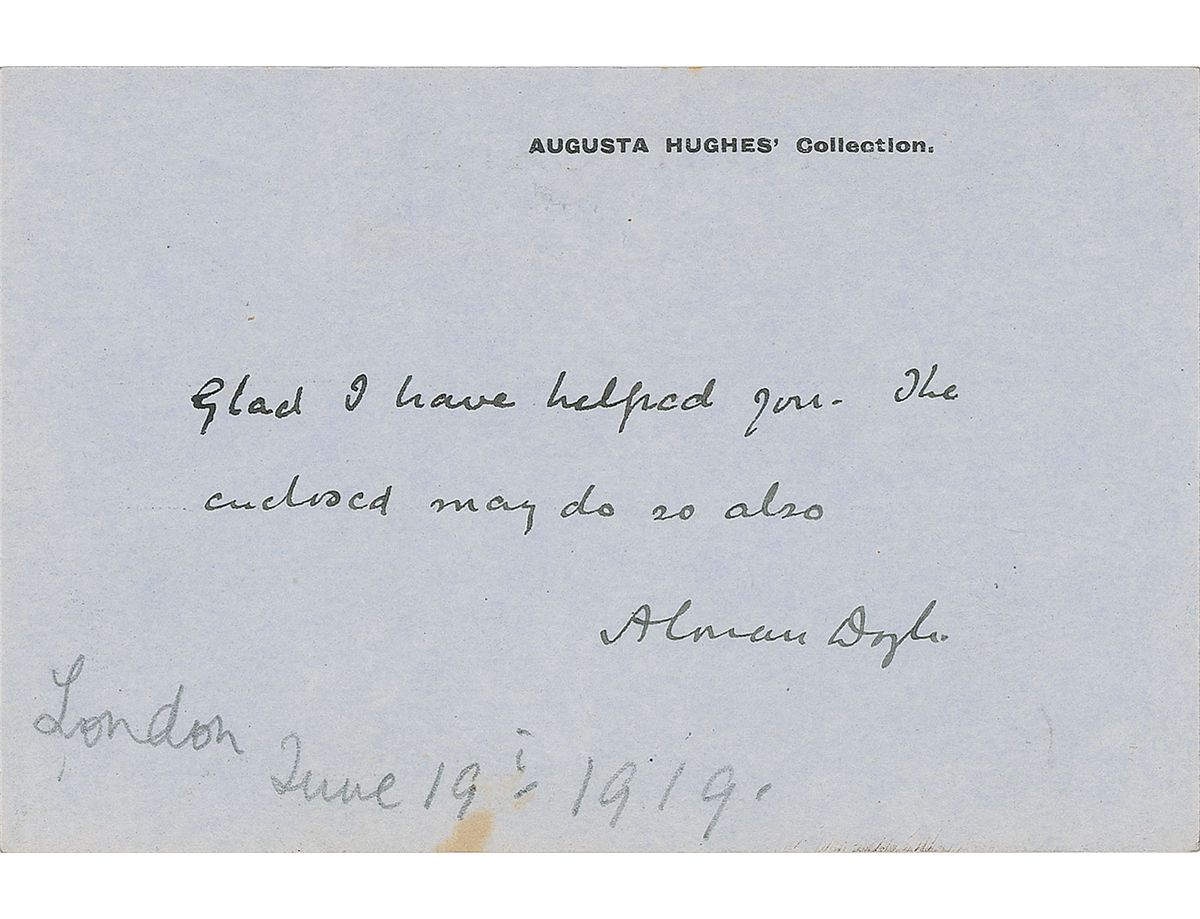 AUGUSTA HUGHES' Collection.
Glad I have helped you. The
enclosed may do so also
A Conan Doyle.
London
June 19th 1919.